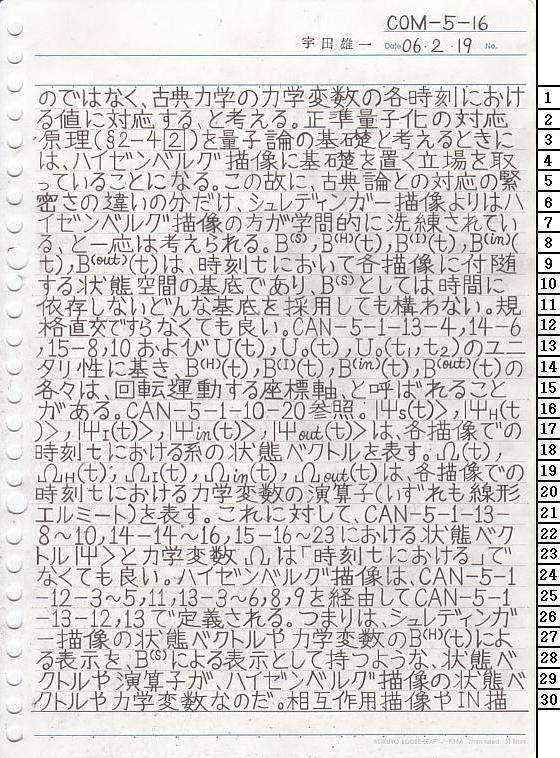 COM-5-16
宇田雄一 Date 06・2・19 No.
のではなく、古典力学の力学変数の各時刻におけ 1
る値に対応する、と考える。正準量子化の対応 2
原理(§2-4 2)を量子論の基礎と考えるときに 3
は、ハイゼンベルグ描像に基礎を置く立場を取 4
っていることになる。この故に、古典論との対応の緊 5
密さの違いの分だけ、シュレディンガー描像よりはハ 6
イゼンベルグ描像の方が学問的に洗練されてい 7
る、と一応は考えられる。B(S),B(H)(t),B(I)(t),B(in)( 8
t),B(out)(t)は、時刻tにおいて各描像に付随 9
する状態空間の基底であり、B(S)としては時間に 10
依存しないどんな基底を採用しても構わない。規 11
格直交ですらなくても良い。CAN-5-1-13-4,14-6 12
,15-8,10およびU(t),U₀(t),U₀(t₁,t₂)のユニ 13
タリ性に基き、B(H)(t),B(I)(t),B(in)(t),B(out)(t)の 14
各々は、回転運動する座標軸、と呼ばれること 15
がある。CAN-5-1-10-20参照。|Ψs(t)>,|ΨH(t 16
)>,|ΨI(t)>,|Ψin(t)>,|Ψout(t)>は、各描像での 17
時刻tにおける系の状態ベクトルを表す。Ω(t), 18
ΩH(t),ΩI(t),Ωin(t),Ωout(t)は、各描像での 19
時刻tにおける力学変数の演算子(いずれも線形 20
エルミート)を表す。これに対して、CAN-5-1-13- 21
8~10,14-14~16,15-16~23における状態ベク 22
トル|Ψ>と力学変数Ωは「時刻tにおける」で 23
なくても良い。ハイゼンベルグ描像は、CAN-5-1 24
-12-3~5,11,13-3~6,8,9を経由してCAN-5-1 25
-13-12,13で定義される。つまりは、シュレディンガ 26
ー描像の状態ベクトルや力学変数のB(H)(t)によ 27
る表示を、B(S)による表示として持つような、状態ベ 28
クトルや演算子が、ハイゼンベルグ描像の状態ベ 29
クトルや力学変数なのだ。相互作用描像やIN描 30
KOKUYO LOOSE-LEAF ノ-836A 7mm ruled 31 lines